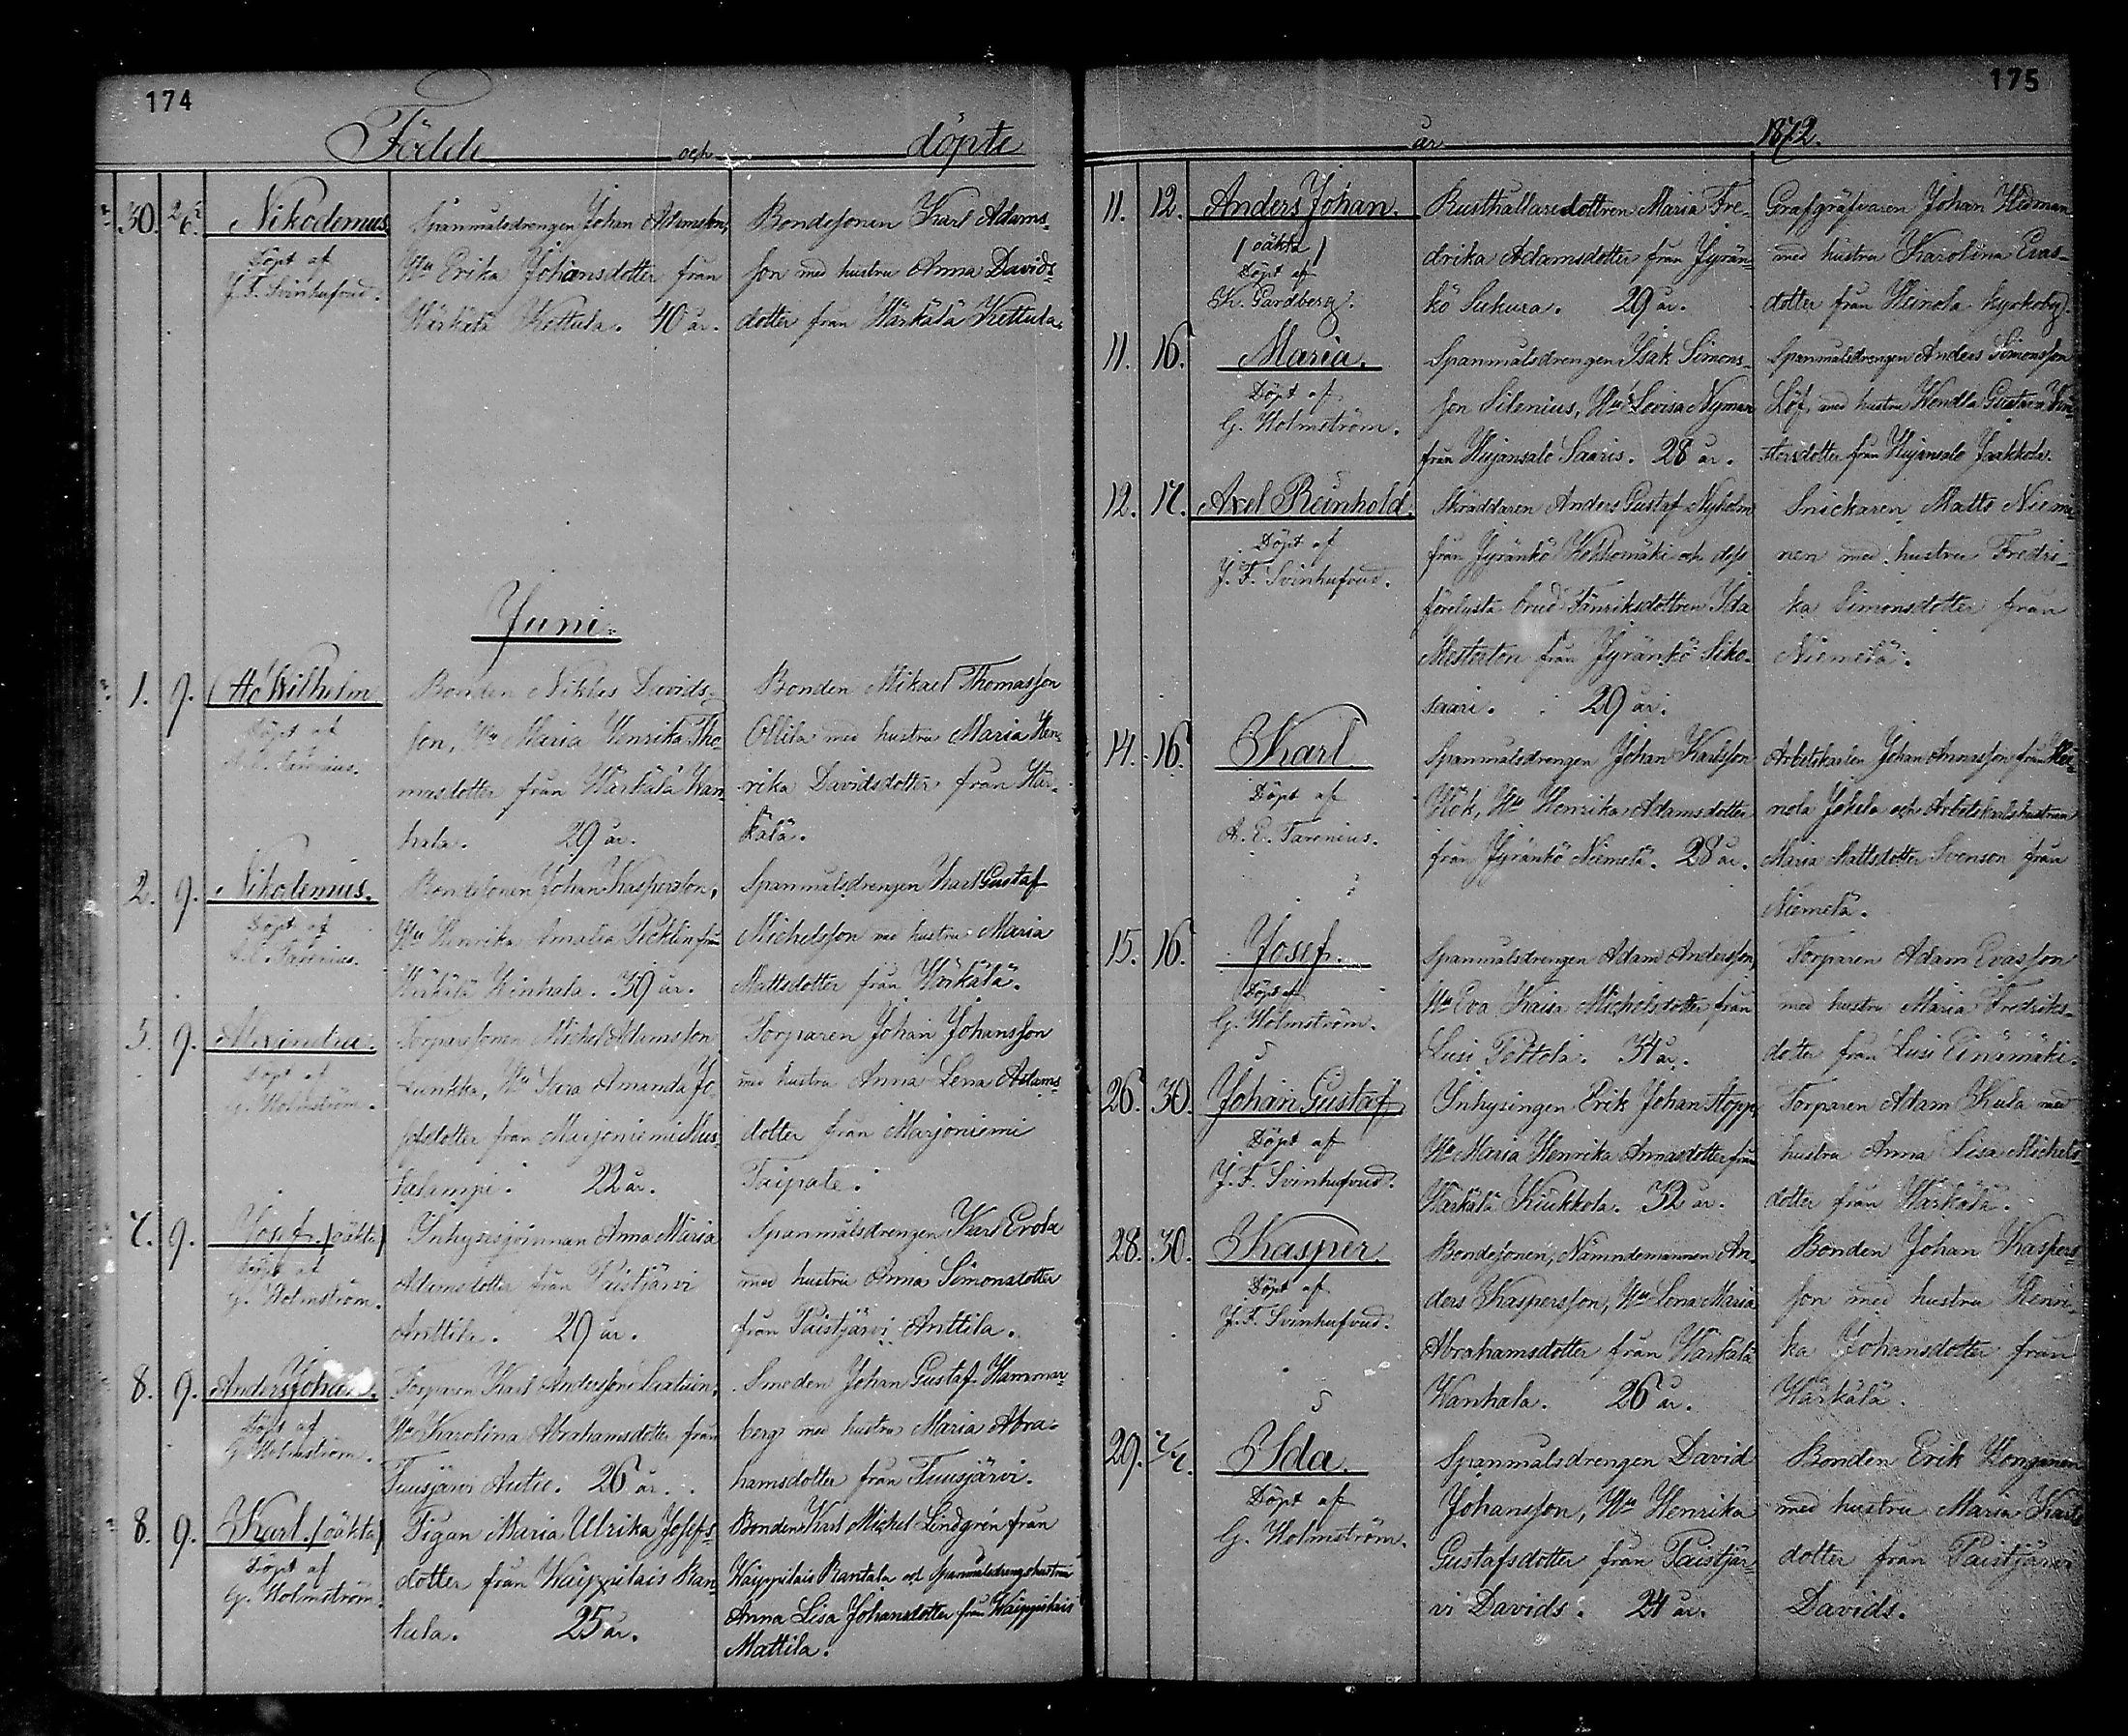 174
Födde och döpte
30. 2/6. Nikodemus
Döpt af
J. F. Svinhufvud.
Spanmålsdrengen Johan Adamsson,
Hu Erika Johansdotter från
Härkälä Kettula. 40 år.
Bondesonen Karl Adams-
son med hustru Anna Davids-
dotter från Härkälä Kettula.
Juni.
1. 9. Wilhelm
Döpt af
Bonden Niklas Davids-
son, Hu Maria Henrika Tho-
masdotter från Härkälä Wan-
hala. 29 år.
Bonden Mikael Thomasson
Ollila med hustru Maria Hen-
rika Davidsdotter från Här-
kälä.
2. 9. Nikodemus.
Döpt af
A. E. Taronius.
Bondesonen Johan Kaspersson,
Hu Henrika Amalia från
Härkälä Wanhala. 39 år.
Spanmålsdrengen Karl Gustaf
Michelsson med hustru Maria
Mattsdotter från Härkälä.
5. 9. Alexandra.
Döpt af
G. Holmström.
Torparesonen Michel Adamsson
Hu Sara Amanda Jo-
sefsdotter från Marjoniemi Mus-
salampi. 22 år.
Torparen Johan Johansson
med hustru Anna Lena Adams-
dotter från Marjoniemi
Taipale.
7. 9. Josef. (oäkta)
Döpt af
G. Holmström.
Inhysesqvinnan Anna Maria
Adamsdotter från Paistjärvi
Anttila. 29 år.
Spanmålsdrengen Karl Erola
med hustru Anna Simonsdotter
från Paistjärvi Anttila.
8. 9. Anders Johan.
Döpt af
G. Holmström.
Torparen Karl Andersson
Hu Karolina Abrahamsdotter från
Tuusjärvi Autio. 26 år.
Smeden Johan Gustaf Hammar-
berg med hustru Maria Abra-
hamsdotter från Tuusjärvi.
8. 9. Karl. (oäkta)
Döpt af
G. Holmström.
Pigan Maria Ulrika Josefs-
dotter från Waippilais Ran-
tala. 25 år.
Bonden Karl Michel Lindgrén från
Waippilais Rantala och Spanmålsdrengshustrun
Anna Lisa Johansdotter från Waippilais
Mattila.
175
år 1872.
11. 12. Anders Johan.
(oäkta)
Döpt af
K. Gardberg.
Rusthållaredottren Maria Fre-
drika Adamsdotter från Jyrän-
kö Sukura. 29 år.
Grafgräfvaren Johan Widman
med hustru Karolina Evas-
dotter från Heinola kyrkoby.
11. 16. Maria.
Döpt af
G. Holmström.
Spanmålsdrengen Isak Simons-
son Silenius, Hu Lovisa Nyman
från Hujansalo Saaris. 28 år.
Spanmålsdrengen Anders Simonsson
Löf med hustru Hendla Gustava
från Hujansalo Jaakkola.
12. 17. Axel Reinhold.
Döpt af
J. F. Svinhufvud.
Skräddaren Anders Gustaf Nyholm
från Jyränkö och dess
förelysta brud Fänriksdottren Ida
Mesterton från Jyränkö Siko-
saari. 29 år.
Snickaren Matts Niemi-
nen med hustru Fredri-
ka Simonsdotter från
Niemelä.
14. 16. Karl
Döpt af
A. E. Taronius.
Spanmålsdrengen Johan Karlsson
Hök, Hu Henrika Adamsdotter
från Jyränkö Niemelä. 28 år.
Arbetskarlen Johan Annasson från Hei-
nola Jokela och Arbetskarlshustrun
Maria Mattsdotter Svenson från
Niemelä.
15. 16. Josef.
Döpt af
G. Holmström.
Spanmålsdrengen Adam Andersson,
Hu Eva Kaisa Michelsdotter från
Lusi Perttola. 34 år.
Torparen Adam Evasson
med hustru Maria Fredriks-
dotter från Lusi Einämäki.
26. 30. Johan Gustaf
Döpt af
J. F. Svinhufvud.
Inhysingen Erik Johan Hopp,
Hu Maria Henrika Annasdotter från
Härkälä Kiukkola. 32 år.
Torparen Adam Kula med
hustru Anna Lisa Michels-
dotter från Härkälä.
28. 30. Kasper.
Döpt af
J. F. Svinhufvud.
Bondesonen, Nämndemannen An-
ders Kaspersson, Hu Lena Maria
Abrahamsdotter från Härkälä
Wanhala. 26 år.
Bonden Johan Kaspers-
son med hustru Henri-
ka Johansdotter från
Härkälä.
29. 7/7. Ida.
Döpt af
G. Holmström.
Spanmålsdrengen David
Johansson, Hu Henrika
Gustafsdotter från Paistjär-
vi Davids. 24 år.
Bonden Erik Hongman
med hustru Maria Karls-
dotter från Paistjärvi
Davids.